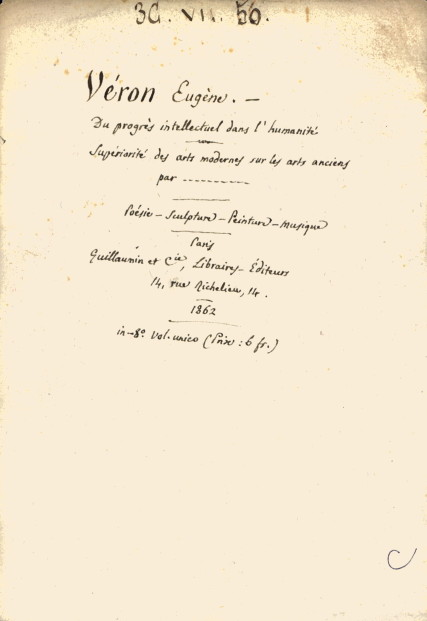 3C. VII. 56.
Véron Eugène. —
Du progrès intellectuel dans l'humanité
Supériorité des arts modernes sur les arts anciens
par ----------
Poésie — Sculpture — Peinture — Musique
Paris
Guillaumin et Cie, Libraires-Éditeurs
14, rue Richelieu, 14.
1862
in-8º vol. unico (Prix : 6 fr.)
C